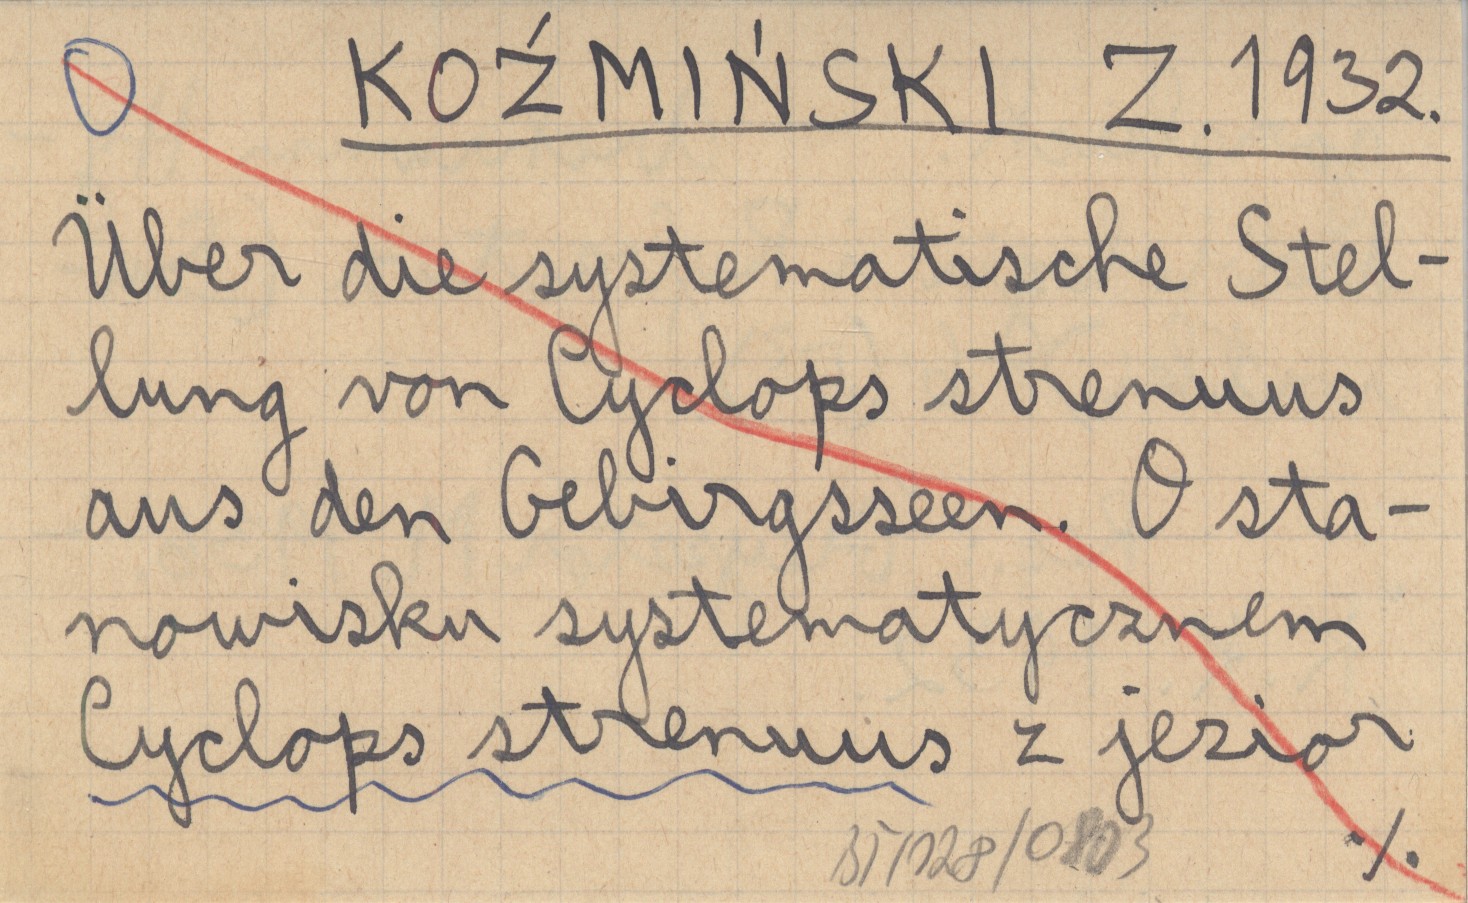 KOŹMIŃSKI Z. 1932.
Über die systematische Stel-
lung von Cyclops strenuus
aus den Gebirgsseen. O sta-
nowisku systematycznem
Cyclops strenuus z jezior
./.